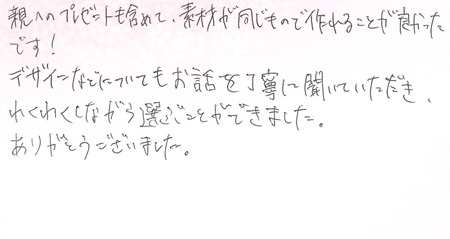 親へのプレゼントも含めて、素材が同じもので作れることが良かった
です！
デザインなどについてもお話を丁寧に聞いていただき、
わくわくしながら選ぶことができました。
ありがとうございました。